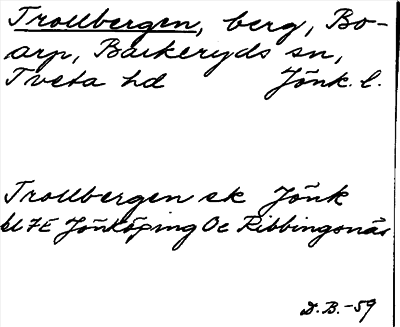 Trollbergen, berg, Bo-
arp, Barkeryds sn,
Tveta hd Jönk. l.
Trollbergen ek Jönk
bl 7E Jönköping Öc Ribbingsnäs
D.B. -59